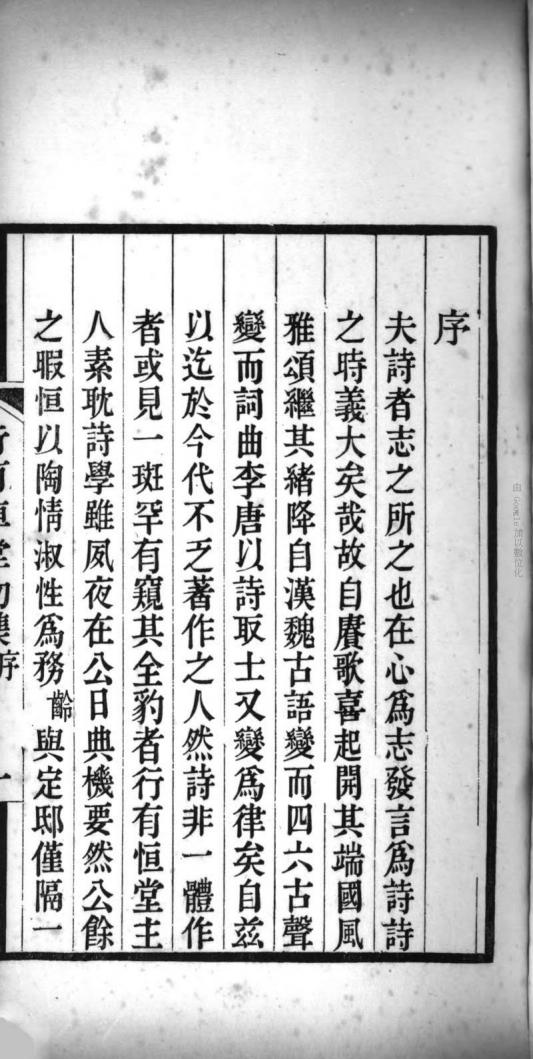 序
夫詩者志之所之也在心爲志發言爲詩詩
之時義大矣哉故自賡歌喜起開其端國風
雅頌繼其緒降自漢魏古語變而四六古聲
變而詞曲李唐以詩取士又變爲律矣自茲
以迄於今代不乏著作之人然詩非一體作
者或見一斑罕有窺其全豹者行有恒堂主
人素耽詩學雖夙夜在公日典機要然公餘
之暇恒以陶情淑性爲務齡與定邸僅隔一
行有恒堂初集序
一
由 Google 加以數位化